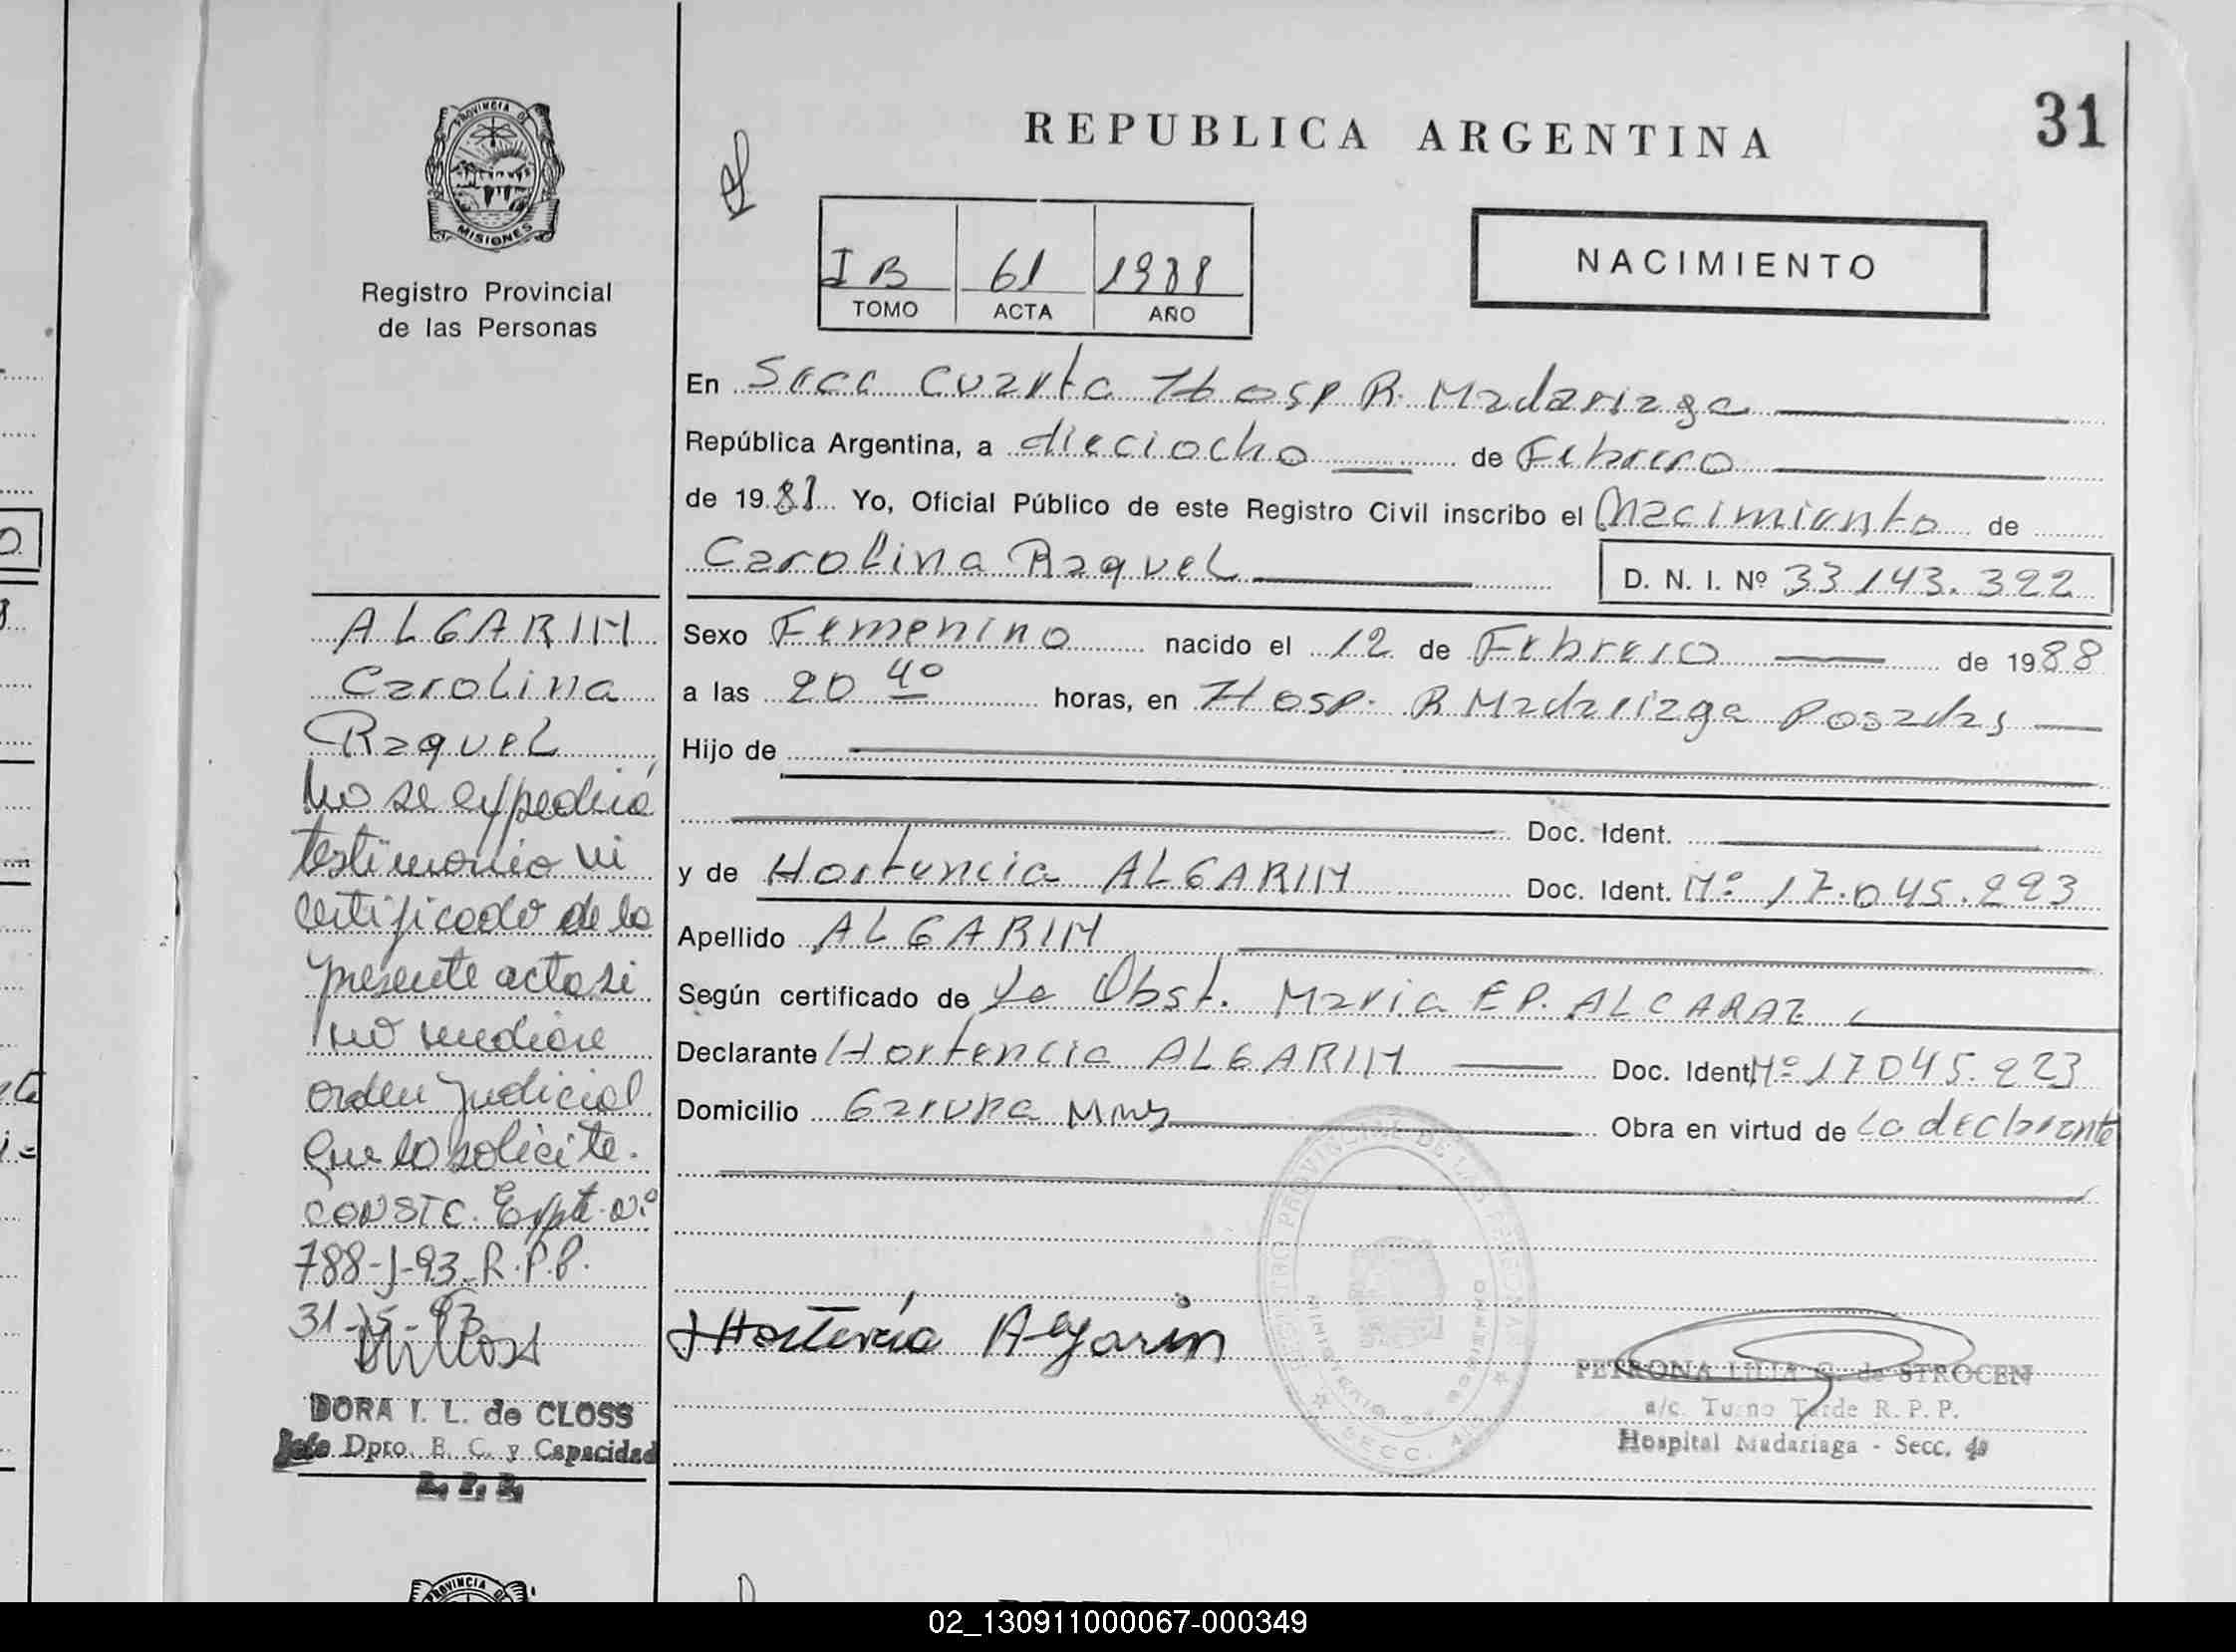 PROVINCIA DE
MISIONES
Registro Provincial
de las Personas
REPUBLICA ARGENTINA
31
I B 61 1988
TOMO ACTA AÑO
NACIMIENTO
En Secc Cuarta Hosp R. Madariaga
República Argentina, a dieciocho de Febrero
de 1988 Yo, Oficial Público de este Registro Civil inscribo el Nacimiento de
Carolina Raquel
D. N. I. Nº 33.143.392
Sexo Femenino nacido el 12 de Febrero de 1988
a las 20 40 horas, en Hosp. R Madariaga Posadas
Hijo de
Doc. Ident.
y de Hortencia ALGARIN Doc. Ident. Nº 17.045.223
Apellido ALGARIN
Según certificado de La Obst. Maria E P. ALCARAZ
Declarante Hortencia ALGARIN Doc. Ident. Nº 17045.223
Domicilio Garupa Mnes Obra en virtud de La declarante
ALGARIN
Carolina
Raquel
No se expedirá
testimonio ni
certificado de la
presente acta si
no mediare
orden judicial
que lo solicite.
CONSTE. Expte. Nº
788-J-93 R.P.P.
31-5-93
DORA I. L. de CLOSS
Jefe Dpto. E. C. y Capacidad
R. P. P.
Hortencia Algarin
REGISTRO PROVINCIAL DE LAS PERSONAS
MINISTERIO DE GOBIERNO
SECC. 4
PETRONA LILIA G. de STROCEN
a/c. Turno Tarde R. P. P.
Hospital Madariaga - Secc. 4a
PROVINCIA DE
02_130911000067-000349